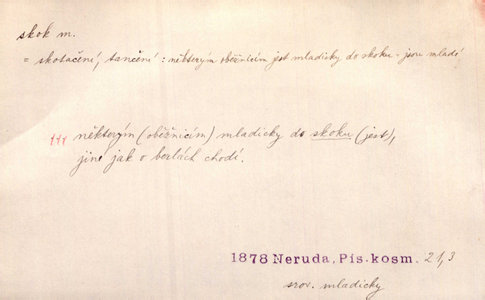 skok m.
= skotačení, tančení : některým oběžnicím jest mladicky do skoku - jsou mladé
††† některým (oběžnicím) mladicky do skoku (jest),
jiné jak o berlách chodí.
1878 Neruda, Pís. kosm. 21,3
srov. mladicky